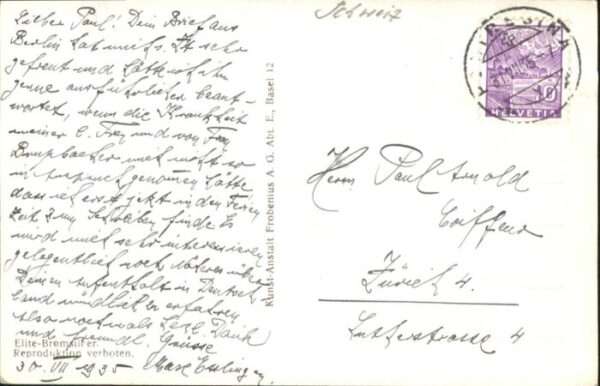 Schweiz
Lieber Paul! Dein Brief aus
Berlin hat mich s. Zt. sehr
gefreut und hätte ich ihn
gerne ausführlicher beant-
wortet, wenn die Krankheit
meiner l. Frau und von Frau
Brupbacher mich nicht so
in Anspruch genommen hätte
dass ich erst jetzt in den Ferien
Zeit zum Schreiben finde. Es
wird mich sehr interessieren
gelegentlich noch Näheres über
Deinen Aufenthalt in Deutsch-
land mündlich zu erfahren
Also nochmals herzl. Dank
und freundl. Grüsse
30. VII 1935 Max Esslinger
Elite-Bromsilber.
Reproduktion verboten.
Kunst-Anstalt Frobenius A. G. Abt. E., Basel 12
HELVETIA
10
Herrn Paul Arnold
Coiffeur
Zürich 4.
Lutherstrasse 4